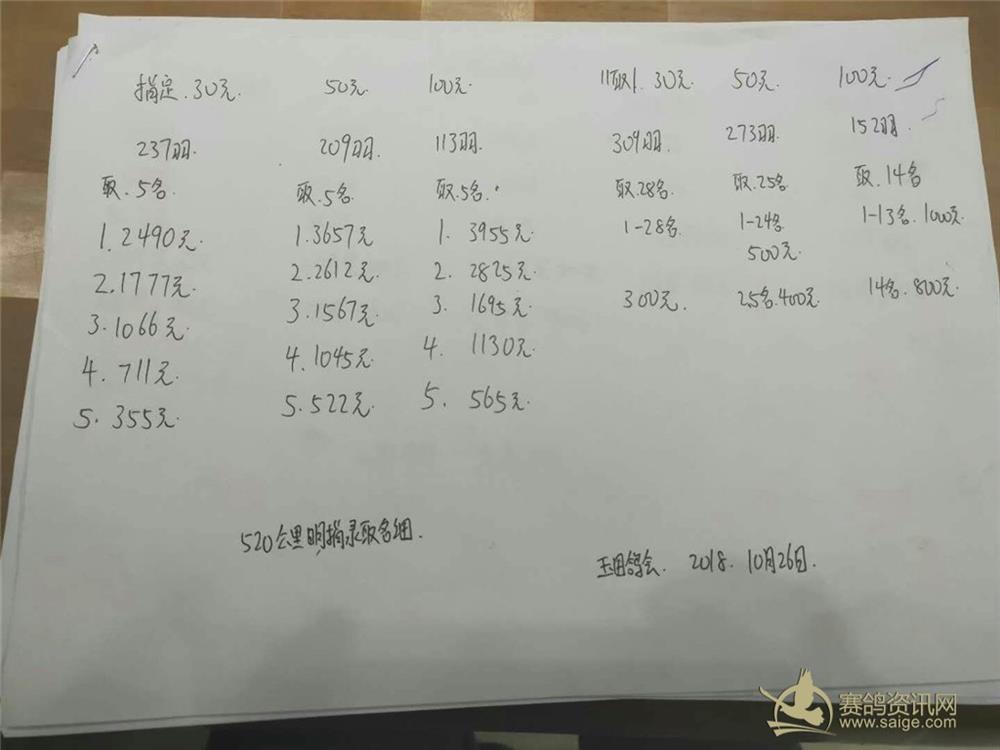 指定.30元. 50元. 100元. 11取1. 30元. 50元. 100元.
237羽. 209羽. 113羽. 309羽. 273羽. 152羽.
取.5名. 取.5名. 取.5名. 取.28名. 取.25名. 取.14名
1.2490元. 1.3657元 1. 3955元. 1-28名. 1-24名 1-13名.1000元.
500元.
2.1777元. 2.2612元. 2. 2825元. 300元. 25名.400元. 14名.800元.
3.1066元. 3.1567元. 3. 1695元.
4. 711元. 4.1045元. 4. 1130元.
5. 355元. 5.522元. 5. 565元.
520公里明指录取名细.
玉田鸽会. 2018. 10月26日.
赛鸽资讯网
www.saige.com